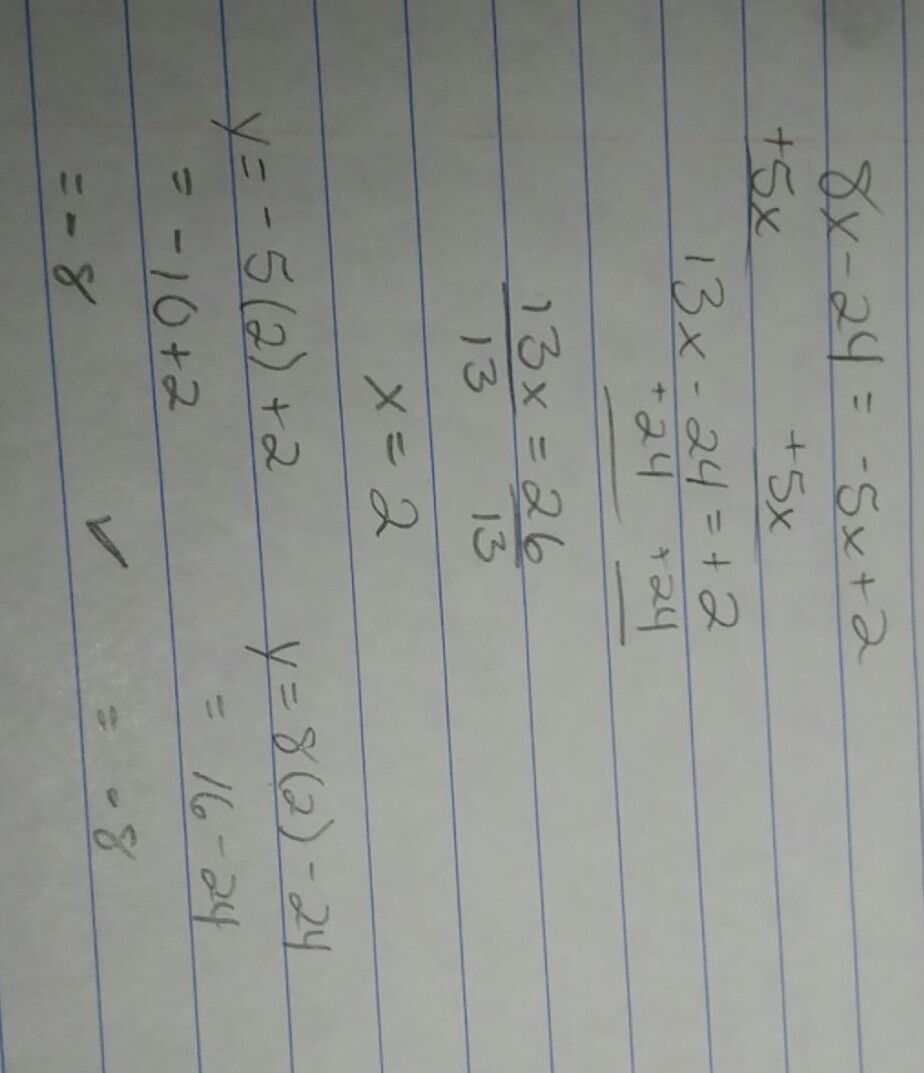 8x - 24 = -5x + 2
+5x +5x
13x - 24 = +2
+24 +24
13x = 26
13 13
x = 2
y = -5(2) + 2 y = 8(2) - 24
= -10 + 2 = 16 - 24
= -8 ✓ = -8